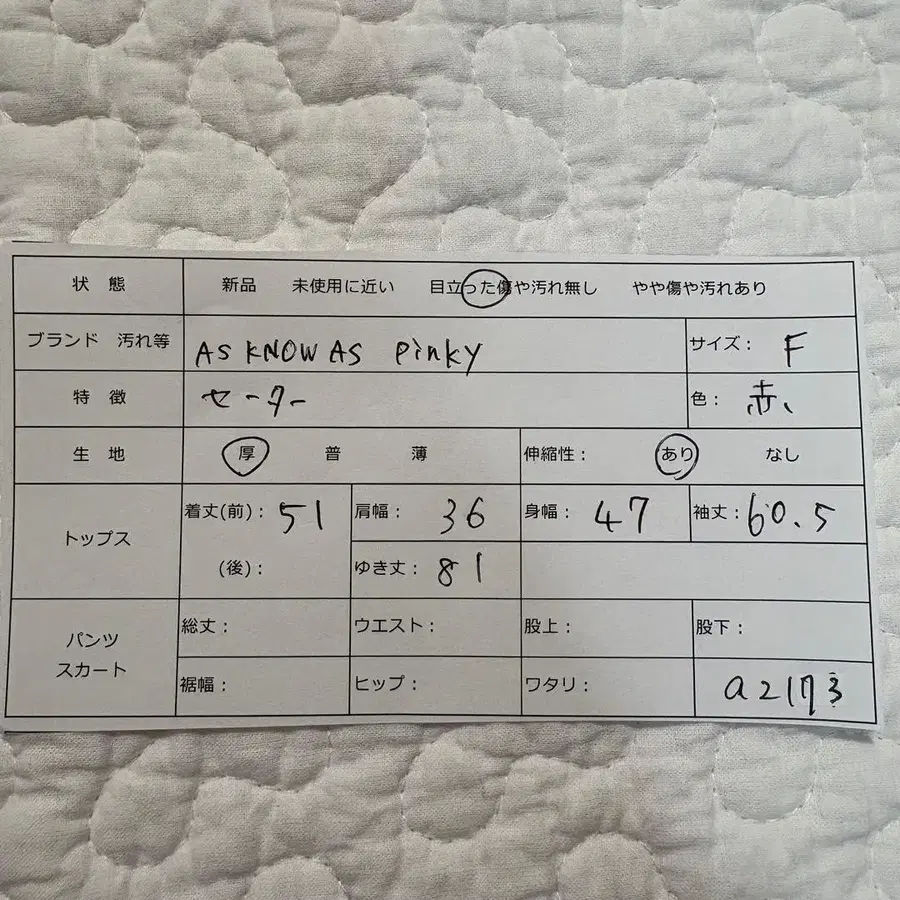 状 態 新品 未使用に近い 目立った傷や汚れ無し やや傷や汚れあり
ブランド 汚れ等 AS KNOW AS Pinky サイズ: F
特 徴 セーター 色: 赤
生 地 厚 普 薄 伸縮性: あり なし
トップス 着丈(前): 51 肩幅: 36 身幅: 47 袖丈: 60.5
(後): ゆき丈: 81
パンツ スカート 総丈: ウエスト: 股上: 股下:
裾幅: ヒップ: ワタリ: a2173